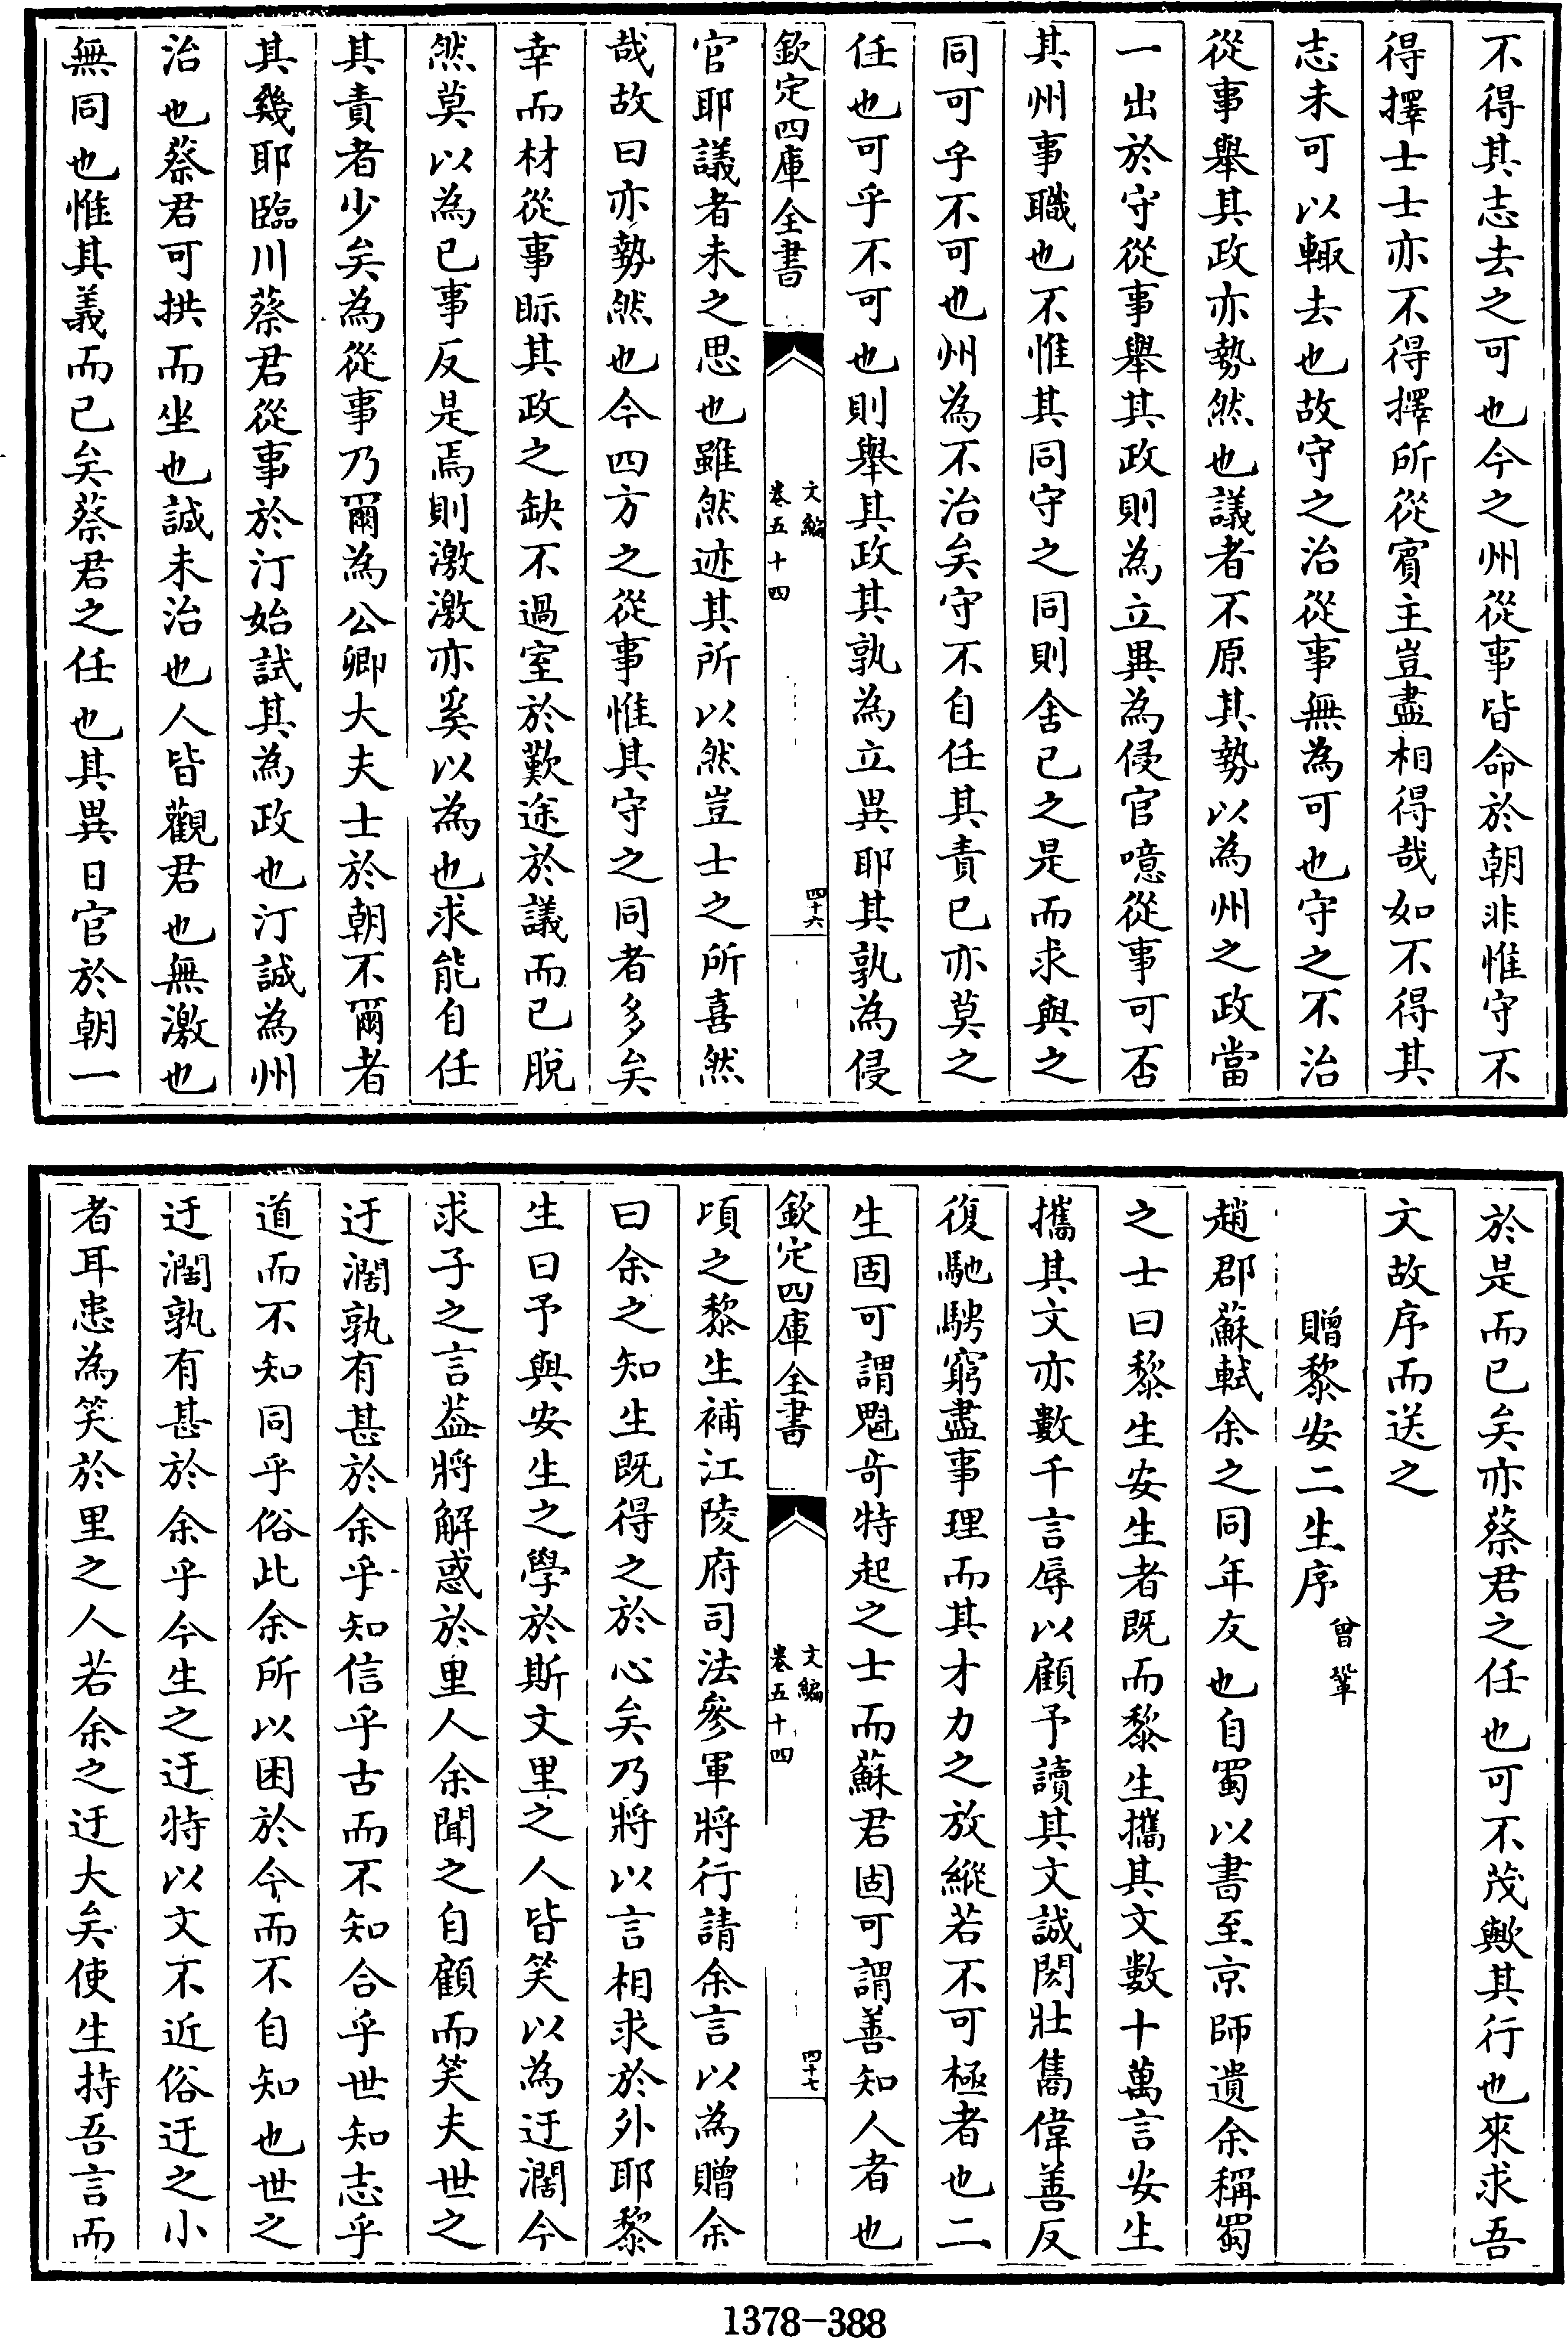 不得其志去之可也今之州從事皆命於朝非惟守不
得擇士士亦不得擇所從賓主豈盡相得哉如不得其
志未可以輙去也故守之治從事無為可也守之不治
從事舉其政亦勢然也議者不原其勢以為州之政當
一出於守從事舉其政則為立異為侵官噫從事可否
其州事職也不惟其同守之同則舍己之是而求與之
同可乎不可也州為不治矣守不自任其責己亦莫之
任也可乎不可也則舉其政其孰為立異耶其孰為侵
欽定四庫全書
文編
卷五十四
四十六
官耶議者未之思也雖然迹其所以然豈士之所喜然
哉故曰亦勢然也今四方之從事惟其守之同者多矣
幸而材從事眎其政之缺不過室於歎途於議而已脫
然莫以為己事反是焉則激激亦奚以為也求能自任
其責者少矣為從事乃爾為公卿大夫士於朝不爾者
其幾耶臨川蔡君從事於汀始試其為政也汀誠為州
治也蔡君可拱而坐也誠未治也人皆觀君也無激也
無同也惟其義而已矣蔡君之任也其異日官於朝一
於是而已矣亦蔡君之任也可不茂歟其行也來求吾
文故序而送之
贈黎安二生序
曾鞏
趙郡蘇軾余之同年友也自蜀以書至京師遺余稱蜀
之士曰黎生安生者既而黎生攜其文數十萬言安生
攜其文亦數千言辱以顧予讀其文誠閎壯雋偉善反
復馳騁窮盡事理而其才力之放縱若不可極者也二
生固可謂魁奇特起之士而蘇君固可謂善知人者也
欽定四庫全書
文編
卷五十四
四十七
頃之黎生補江陵府司法參軍將行請余言以為贈余
曰余之知生既得之於心矣乃將以言相求於外耶黎
生曰予與安生之學於斯文里之人皆笑以為迂濶今
求子之言葢將解惑於里人余聞之自顧而笑夫世之
迂濶孰有甚於余乎知信乎古而不知合乎世知志乎
道而不知同乎俗此余所以困於今而不自知也世之
迂濶孰有甚於余乎今生之迂特以文不近俗迂之小
者耳患為笑於里之人若余之迂大矣使生持吾言而
1378-388